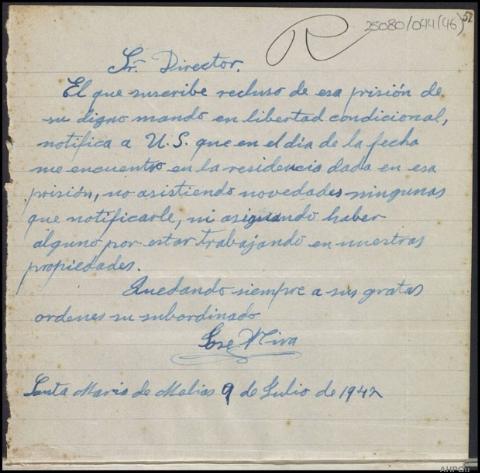 R 25080/044(46) 52
Sr. Director.
El que suscribe recluso de esa prisión de
su digno mando en libertad condicional,
notifica a U.S. que en el dia de la fecha
me encuentro en la residencia dada en esa
prisión, no asistiendo novedades ningunas
que notificarle, ni asignando haber
alguno por estar trabajando en nuestras
propiedades.
Quedando siempre a sus gratas
ordenes su subordinado
Jose
Santa Maria de 9 de Julio de 1942